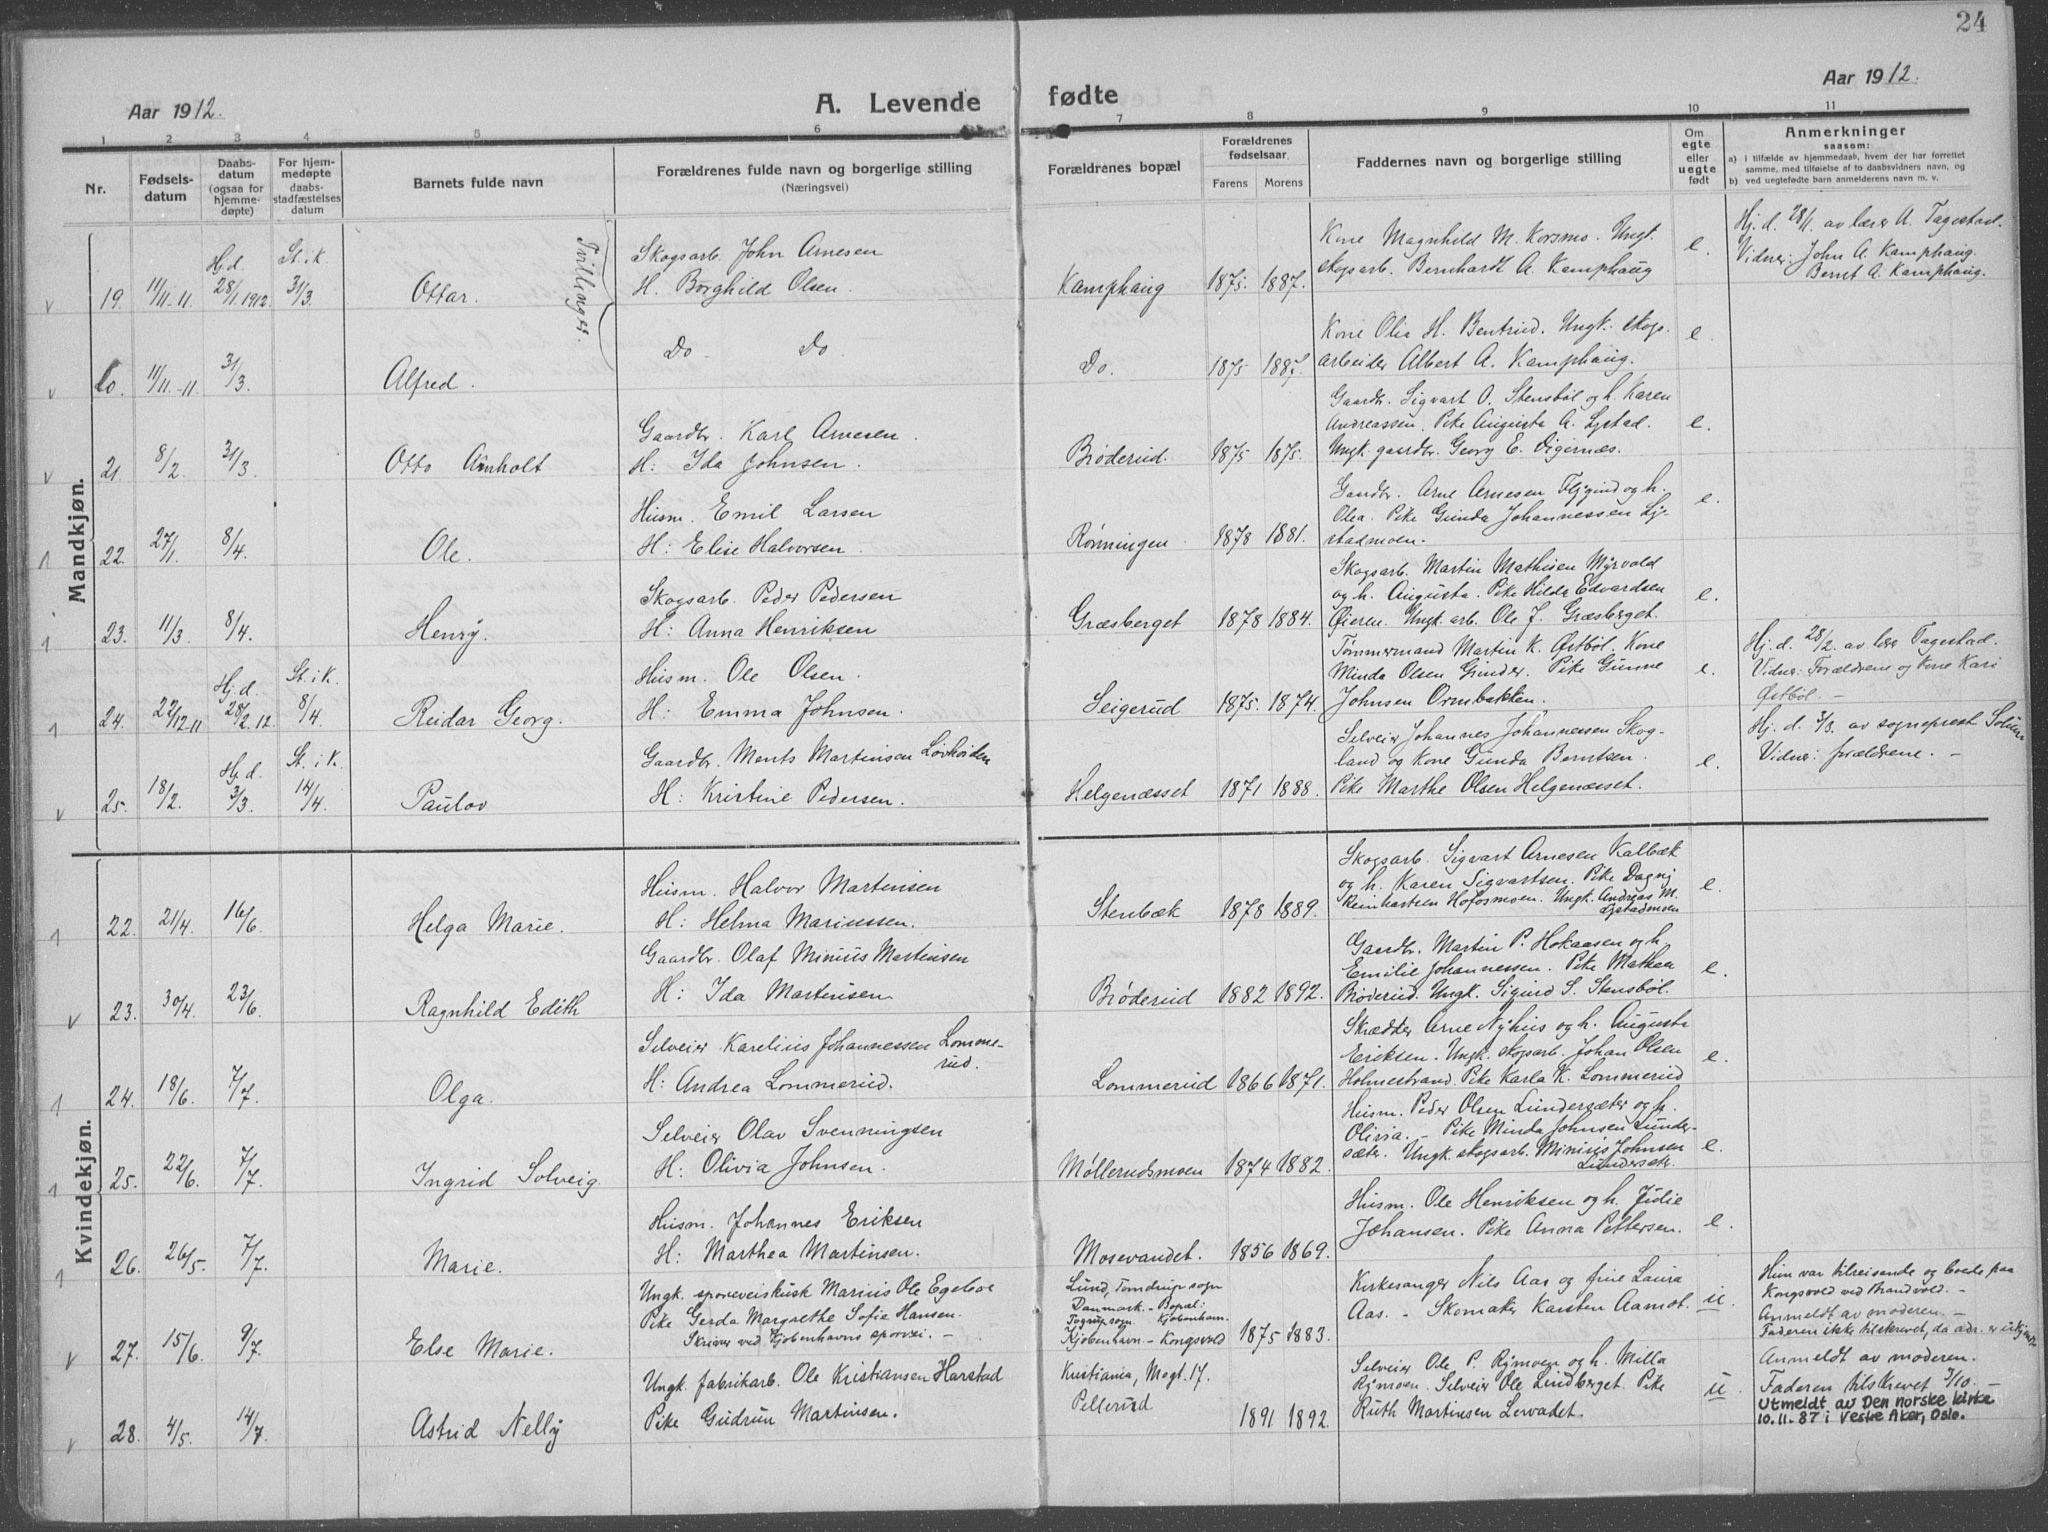 24
Aar 1912.
A. Levende fødte
Aar 1912.
1 2 3 4 5 6 7 8 9 10 11
Nr.
Fødsels-
datum
Daabs-
datum
(ogsaa for
hjemme-
døpte)
For hjem-
medøpte
daabs-
stadfæstelses
datum
Barnets fulde navn
Forældrenes fulde navn og borgerlige stilling
(Næringsvei)
Forældrenes bopæl
Forældrenes
fødselsaar
Farens Morens
Faddernes navn og borgerlige stilling
Om
egte
eller
uegte
født
Anmerkninger
saasom:
a) i tilfælde av hjemmedaab, hvem der har forrettet
samme, med tilføielse af to daabsvidners navn, og
b) ved uegtefødte barn anmelderens navn m. v.
Mandkjøn.
Tvillinger.
19. 11/11-11. Hj.d. 28/1 1912. St. i K. 31/3. Ottar.
Skogsarb. John Arnesen
H. Borghild Olsen.
Kamphaug 1875. 1887.
Kone Magnhild M. Korsmo. Ungk.
skogsarb. Bernhardt A. Kamphaug
e.
Hj. d. 28/1. av lærer A. Tagestad.
Vidner: John A. Kamphaug.
Bernt A. Kamphaug.
20. 11/11-11. 31/3. Alfred.
Do. Do.
Do. 1875 1887.
Kone Olia H. Bentrud. Ungk. skogs.
arbeider Albert A. Kamphaug.
e.
21. 8/2. 31/3. Otto Arnholt
Gaardbr. Karl Arnesen.
H: Ida Johnsen.
Brøderud. 1875 1875.
Gaardbr. Sigvart O. Stensbøl og h. Karen
Andreassen. Pike Augusta A. Lystad.
Ungk. gaardbr. Georg E. Digernæs.
e.
22. 27/1. 8/4. Ole.
Husm. Emil Larsen
H: Elise Halvorsen.
Rønningen. 1878 1881.
Gaardbr. Arne Arnesen Flygind og h.
Olea. Pike Gunda Johannessen Ly-
stadmoen.
e.
23. 11/3. 8/4. Henry.
Skogsarb. Peder Pedersen
H: Anna Henriksen
Græsberget 1878 1884.
Skogsarb. Martin Mathisen Myrvold
og h. Augusta. Pike Hilda Edvardsen
Øieren. Ungk. arb. Ole J. Græsberget.
e.
24. 22/12-11 Hj.d. 28/2.12. St. i K. 8/4. Reidar Georg.
Husm. Ole Olsen.
H: Emma Johnsen.
Seigerud 1875. 1874.
Tømmermand Martin K. Østbøl. Kone
Minda Olsen Grinder. Pike Gunne
Johnsen Ormbakken.
e.
Hj. d. 28/2. av lærer Tagestad.
Vidner: Forældrene og kone Kari
Østbøl. -
25. 18/2. Hj.d. 3/3. St. i K. 14/4. Paulov
Gaardbr. Ments Martinsen Løvhøiden
H: Kristine Pedersen.
Helgenæsset 1871 1888.
Selveier Johannes Johannessen Skog-
land og Kone Gunda Berntsen.
Pike Marthe Olsen Helgenæsset.
e.
Hj. d. 3/3. av sogneprest Solum
Vidner: forældrene. -
Kvindekjøn.
22. 21/4. 16/6. Helga Marie.
Husm. Halvor Martinsen
H: Helma Mariussen.
Stenbæk 1878 1889.
Skogsarb. Sigvart Arnesen Kalbæk
og h. Karen Sigvartsen. Pike Dagny
Reinhartsen Hofosmoen. Ungk. Andreas M.
Lystadmoen
e.
23. 30/4. 23/6. Ragnhild Edith
Gaardbr. Olaf Minius Martinsen
H: Ida Martinsen
Brøderud 1882 1892.
Gaardbr. Martin P. Hokaasen og h.
Emilie Johannessen. Pike Mathea
Brøderud. Ungk. Sigurd S. Stensbøl.
e.
24. 18/6. 7/7. Olga.
Selveier Karelius Johannessen Lomme-
rud.
H: Andrea Lommerud.
Lommerud 1866 1871.
Skrædder Arne Nyhus og h. Augusta
Eriksen. Ungk. skogsarb. Johan Olsen
Holmestrand. Pike Karla K. Lommerud
e.
25. 22/6. 7/7. Ingrid Solveig.
Selveier Olav Svenningsen
H: Olivia Johnsen.
Møllerudsmoen 1874 1882.
Husm. Peder Olsen Lundersæter og h.
Olivia. - Pike Minda Johnsen Lunder-
sæter. Ungk. skogsarb. Minius Johnsen
Lundersæter.
e.
26. 26/5. 7/7. Marie.
Husm. Johannes Eriksen
H: Marthea Martinsen.
Mosevandet. 1856 1869.
Husm. Ole Henriksen og h. Julie
Johansen. Pike Anna Pettersen.
e.
27. 15/6. 9/7. Else Marie.
Ungk. sporveiskusk Marius Ole Egeboe
Pike Gerda Margrethe Sofie Hansen.
Skriver ved Kjøbenhavns sporvei. -
Lund, Tomdrup sogn
Danmark. - Bopæl:
Kjøbenhavn.
Kjøbenhavn - Kongsvold 1875 1883.
Kirkesanger Nils Aas og frue Laura
Aas. - Skomaker Karsten Aamot.
u.
Hun var tilreisende og boede paa
Kongsvold ved Brandvold. -
Anmeldt av moderen. -
Faderen ikke tilskrevet, da adr. er ukjendt
28. 4/5. 14/7. Astrid Nelly
Ungk. fabrikarb. Ole Kristiansen Harstad
Pike Gudrun Martinsen.
Kristiania, Mogt. 17.
Pellerud 1891 1892
Selveier Ole P. Rymoen og h. Milla
Rymoen. Selveier Ole Lindberget. Pike
Ruth Martinsen Lervadet.
u.
Anmeldt av moderen.
Faderen tilskrevet 7/10. -
Utmeldt av Den norske kirke
10.11.87 i Vestre Aker, Oslo.